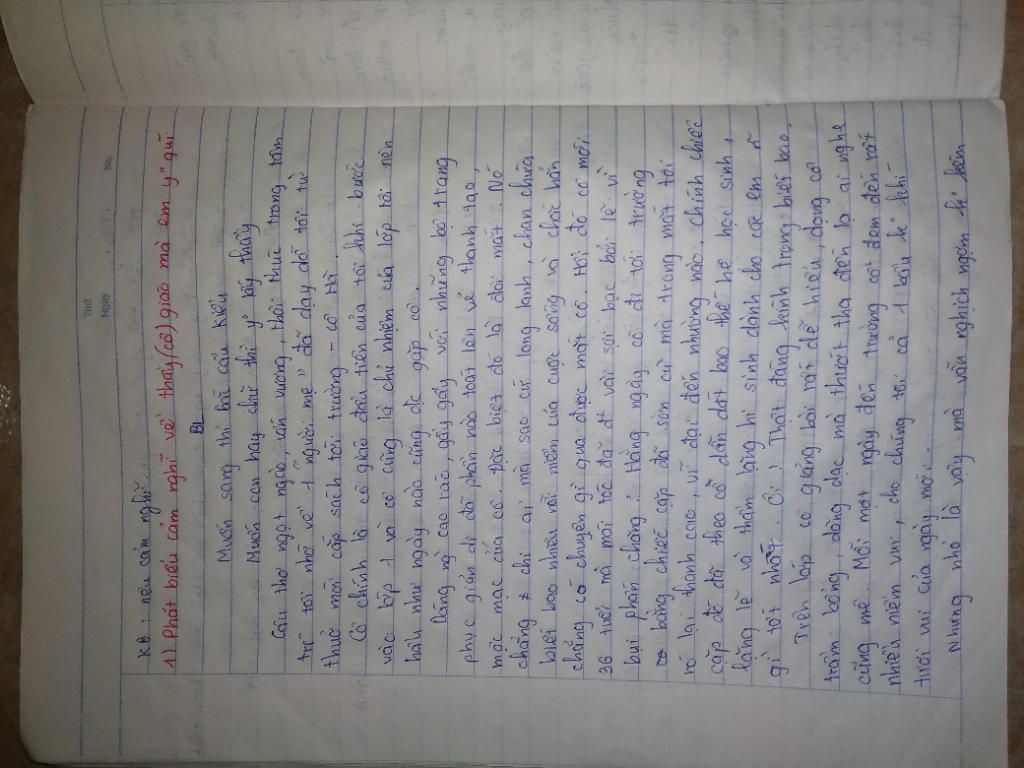 Thứ
Ngày
No.
KB: nêu cảm nghĩ.
1) Phát biểu cảm nghĩ về thầy (cô) giáo mà em yo quí
BL
Muốn sang thì bắc cầu kiều
Muốn con hay chữ thì yo lấy thầy
Câu thơ ngọt ngào, vấn vương, thôi thúc trong tâm
trí tôi nhớ về 1 "người mẹ" đã dạy dỗ tôi từ
thuở mới cắp sách tới trường - cô Hà.
Cô chính là cô giáo đầu tiên của tôi khi bước
vào lớp 1 và cô cũng là chủ nhiệm của lớp tôi nên
hầu như ngày nào cũng đc gặp cô.
Dáng ng cao cao gầy gầy với những bộ trang
phục giản dị đã phần nào toát lên vẻ thanh tao,
mộc mạc của cô. Đặc biệt đó là đôi mắt. Nó
chẳng ≠ chi ai mà sao cứ long lanh, chan chứa
biết bao nhiêu nỗi niềm của cuộc sống và chắc hẳn
chẳng có chuyện gì qua được mắt cô. Hồi đó cô mới
36 tuổi mà mái tóc đã đ vài sợi bạc bởi lẽ vì
bụi phấn chăng? Hằng ngày cô đi tới trường
bằng chiếc cặp đã sờn cũ mà trong mắt tôi
nó lại thanh cao, vĩ đại đến nhường nào. Chính chiếc
cặp đó đã theo cô dẫn dắt bao thế hệ học sinh,
lặng lẽ và thầm lặng hi sinh dành cho các em n~
gì tốt nhất. Ôi! Thật đáng kính trọng biết bao.
Trên lớp, cô giảng bài rất dễ hiểu, giọng cô
trầm bổng, dõng dạc mà thướt tha đến lạ ai nghe
cũng mê. Mỗi một ngày đến trường cô đem đến rất
nhiều niềm vui, cho chúng tôi cả 1 bầu ko khí
tươi vui của ngày mới...
Nhưng nhỏ là vậy mà vẫn nghịch ngợm ko kém